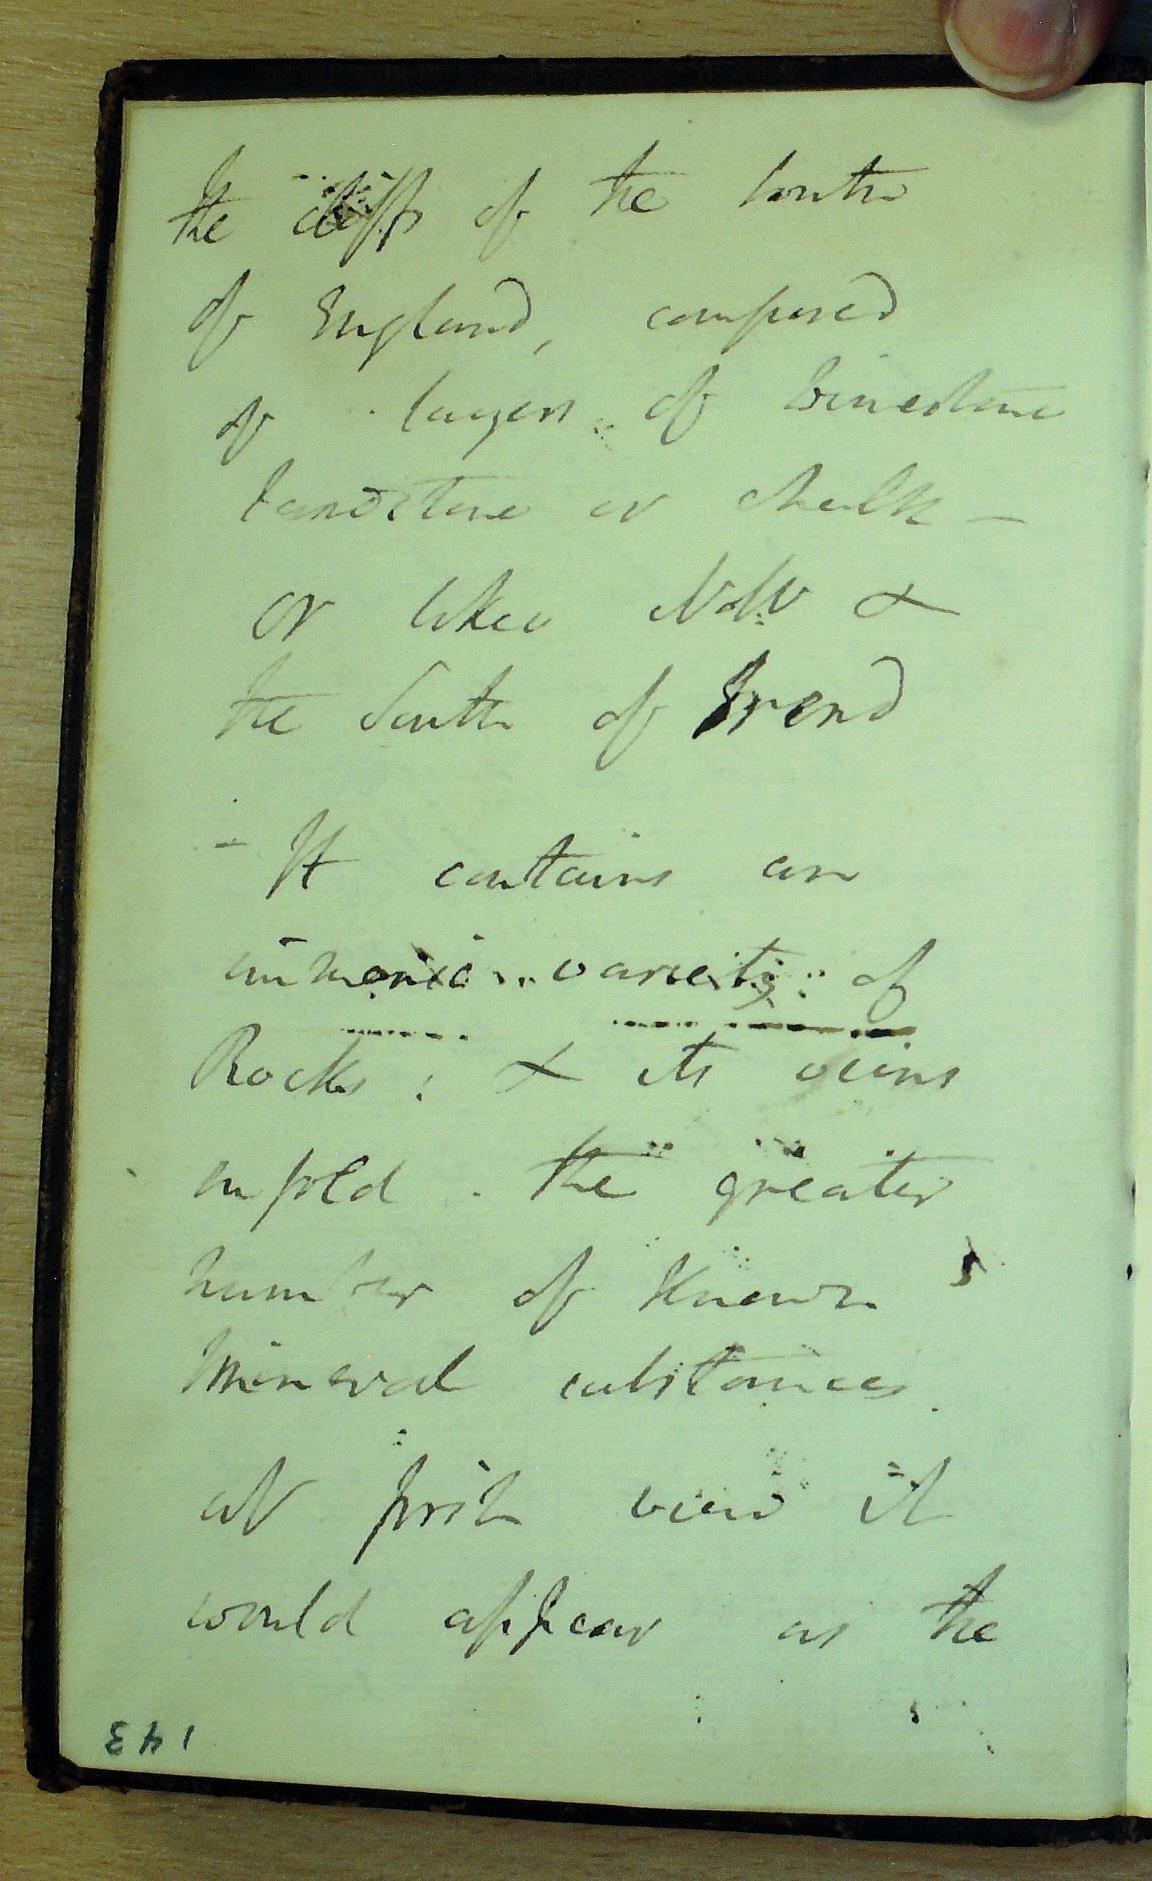 the cliffs of the South
of England, composed
of layers of Limestone
Sandstone or chalk –
or like &
the South of Ireland
– It contains an
immense variety of
Rocks; & its veins
enfold the greater
number of known
Mineral substances.
At first view it
would appear as the
143